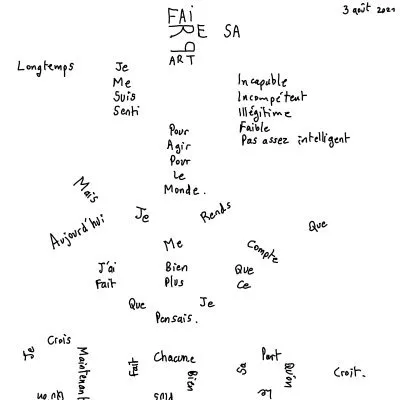 3 août 2021
FAIRE SA
PART
Longtemps Je
Me Incapable
Suis Incompétent
Senti Illégitime
Pour Faible
Agir Pas assez intelligent
Pour
Le
Monde.
Mais
Aujourd'hui Je Rends
Me Compte Que
J'ai Bien Que
Fait Plus Ce
Que Je
Pensais.
Je Crois Maintenant
Fait Chacune Bien
Sa Part Qu'on Croit.
Que Plus Le